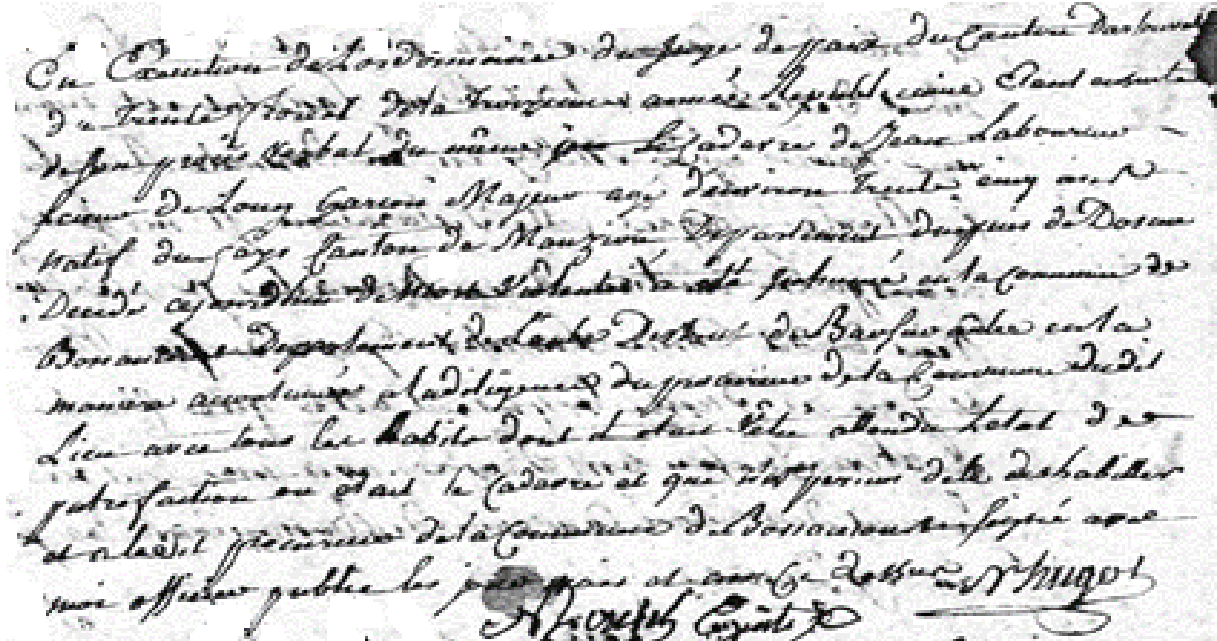 En Execution de L'ordonnance du juge de paix du Canton
de trente floreal de la troizieme année Republicaine Etant ensuite
de son procès verbal du même jour Le Cadavre de Jean Laboureur
scieur de Long Garcon Majeur agé d'environ trente cinq ans
natif du Canton de Departement du puis de Dosme
Decedé cejourdhui de Mort Violente a été inhumé en la commune de
departement de L'aube District de Bar sur aube en la
manière accoutumée a la diligence du procureur de la Commune dudit
Lieu avec tous les habits dont il etait vêtu attendu L'etat de
putrefaction ou etait le Cadavre et que n'a permis de le deshabiller
et a ledit procureur de la Commune de signé avec
moi officier public les jour mois et an Cy dessus N hugot